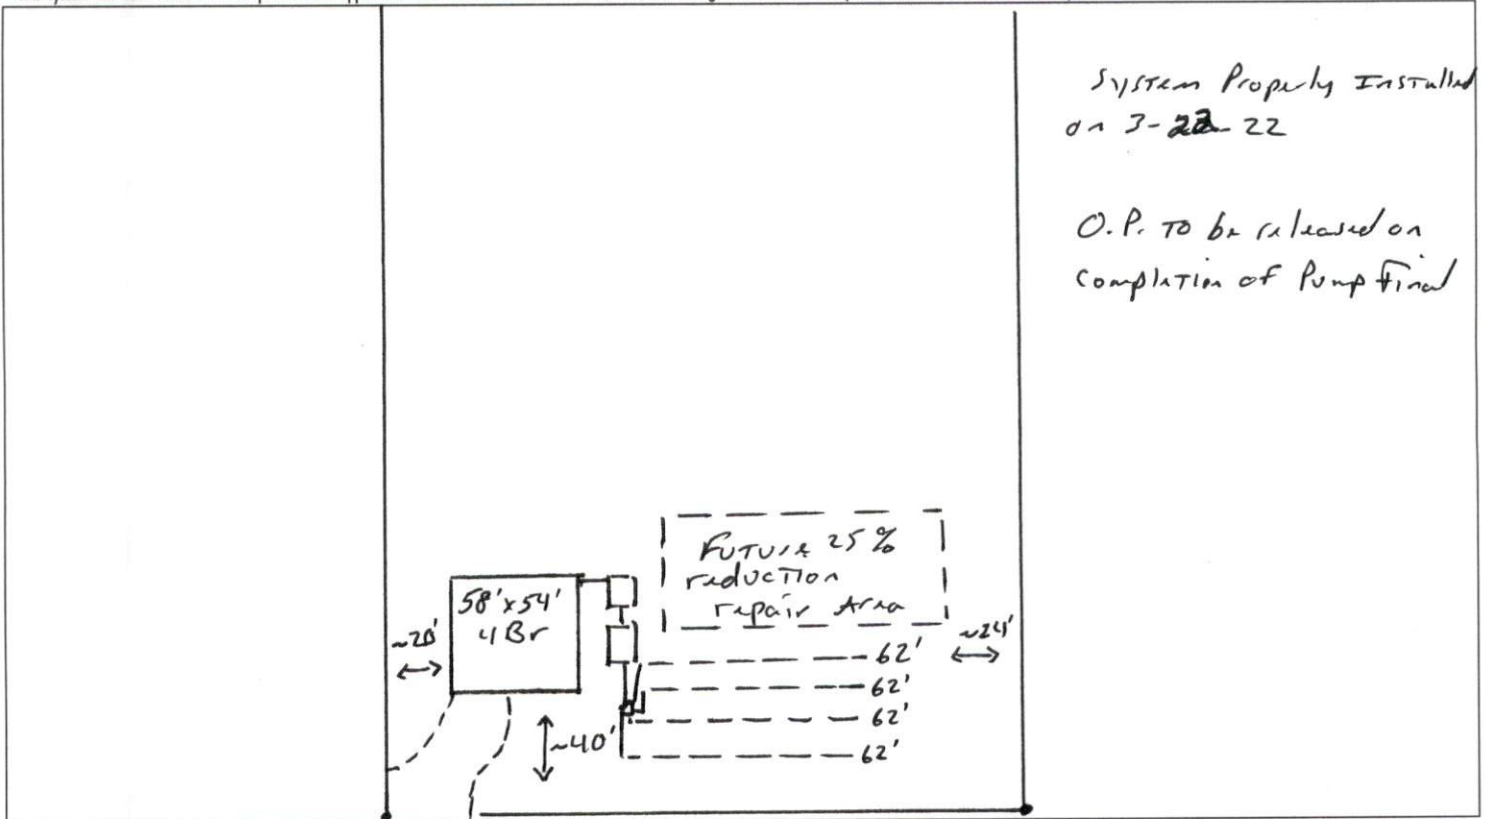 System Properly Installed
on 3-22-22
O.P. To be released on
completion of Pump Final
Future 25%
reduction
repair Area
58'x54'
4 Br
~20'
~24'
62'
62'
62'
62'
~40'